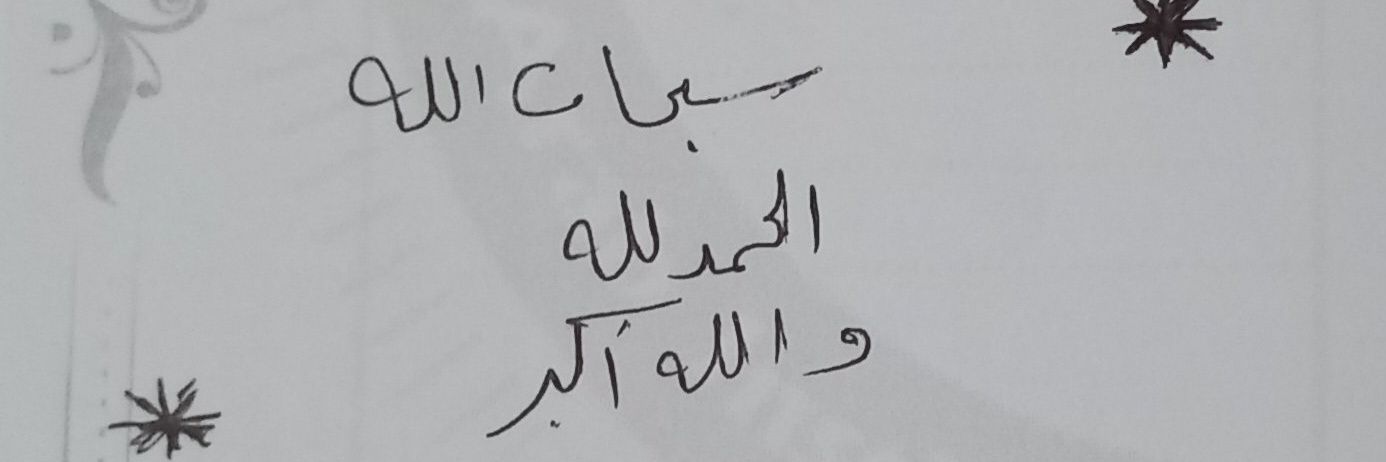 سبحان الله
الحمد لله
والله أكبر